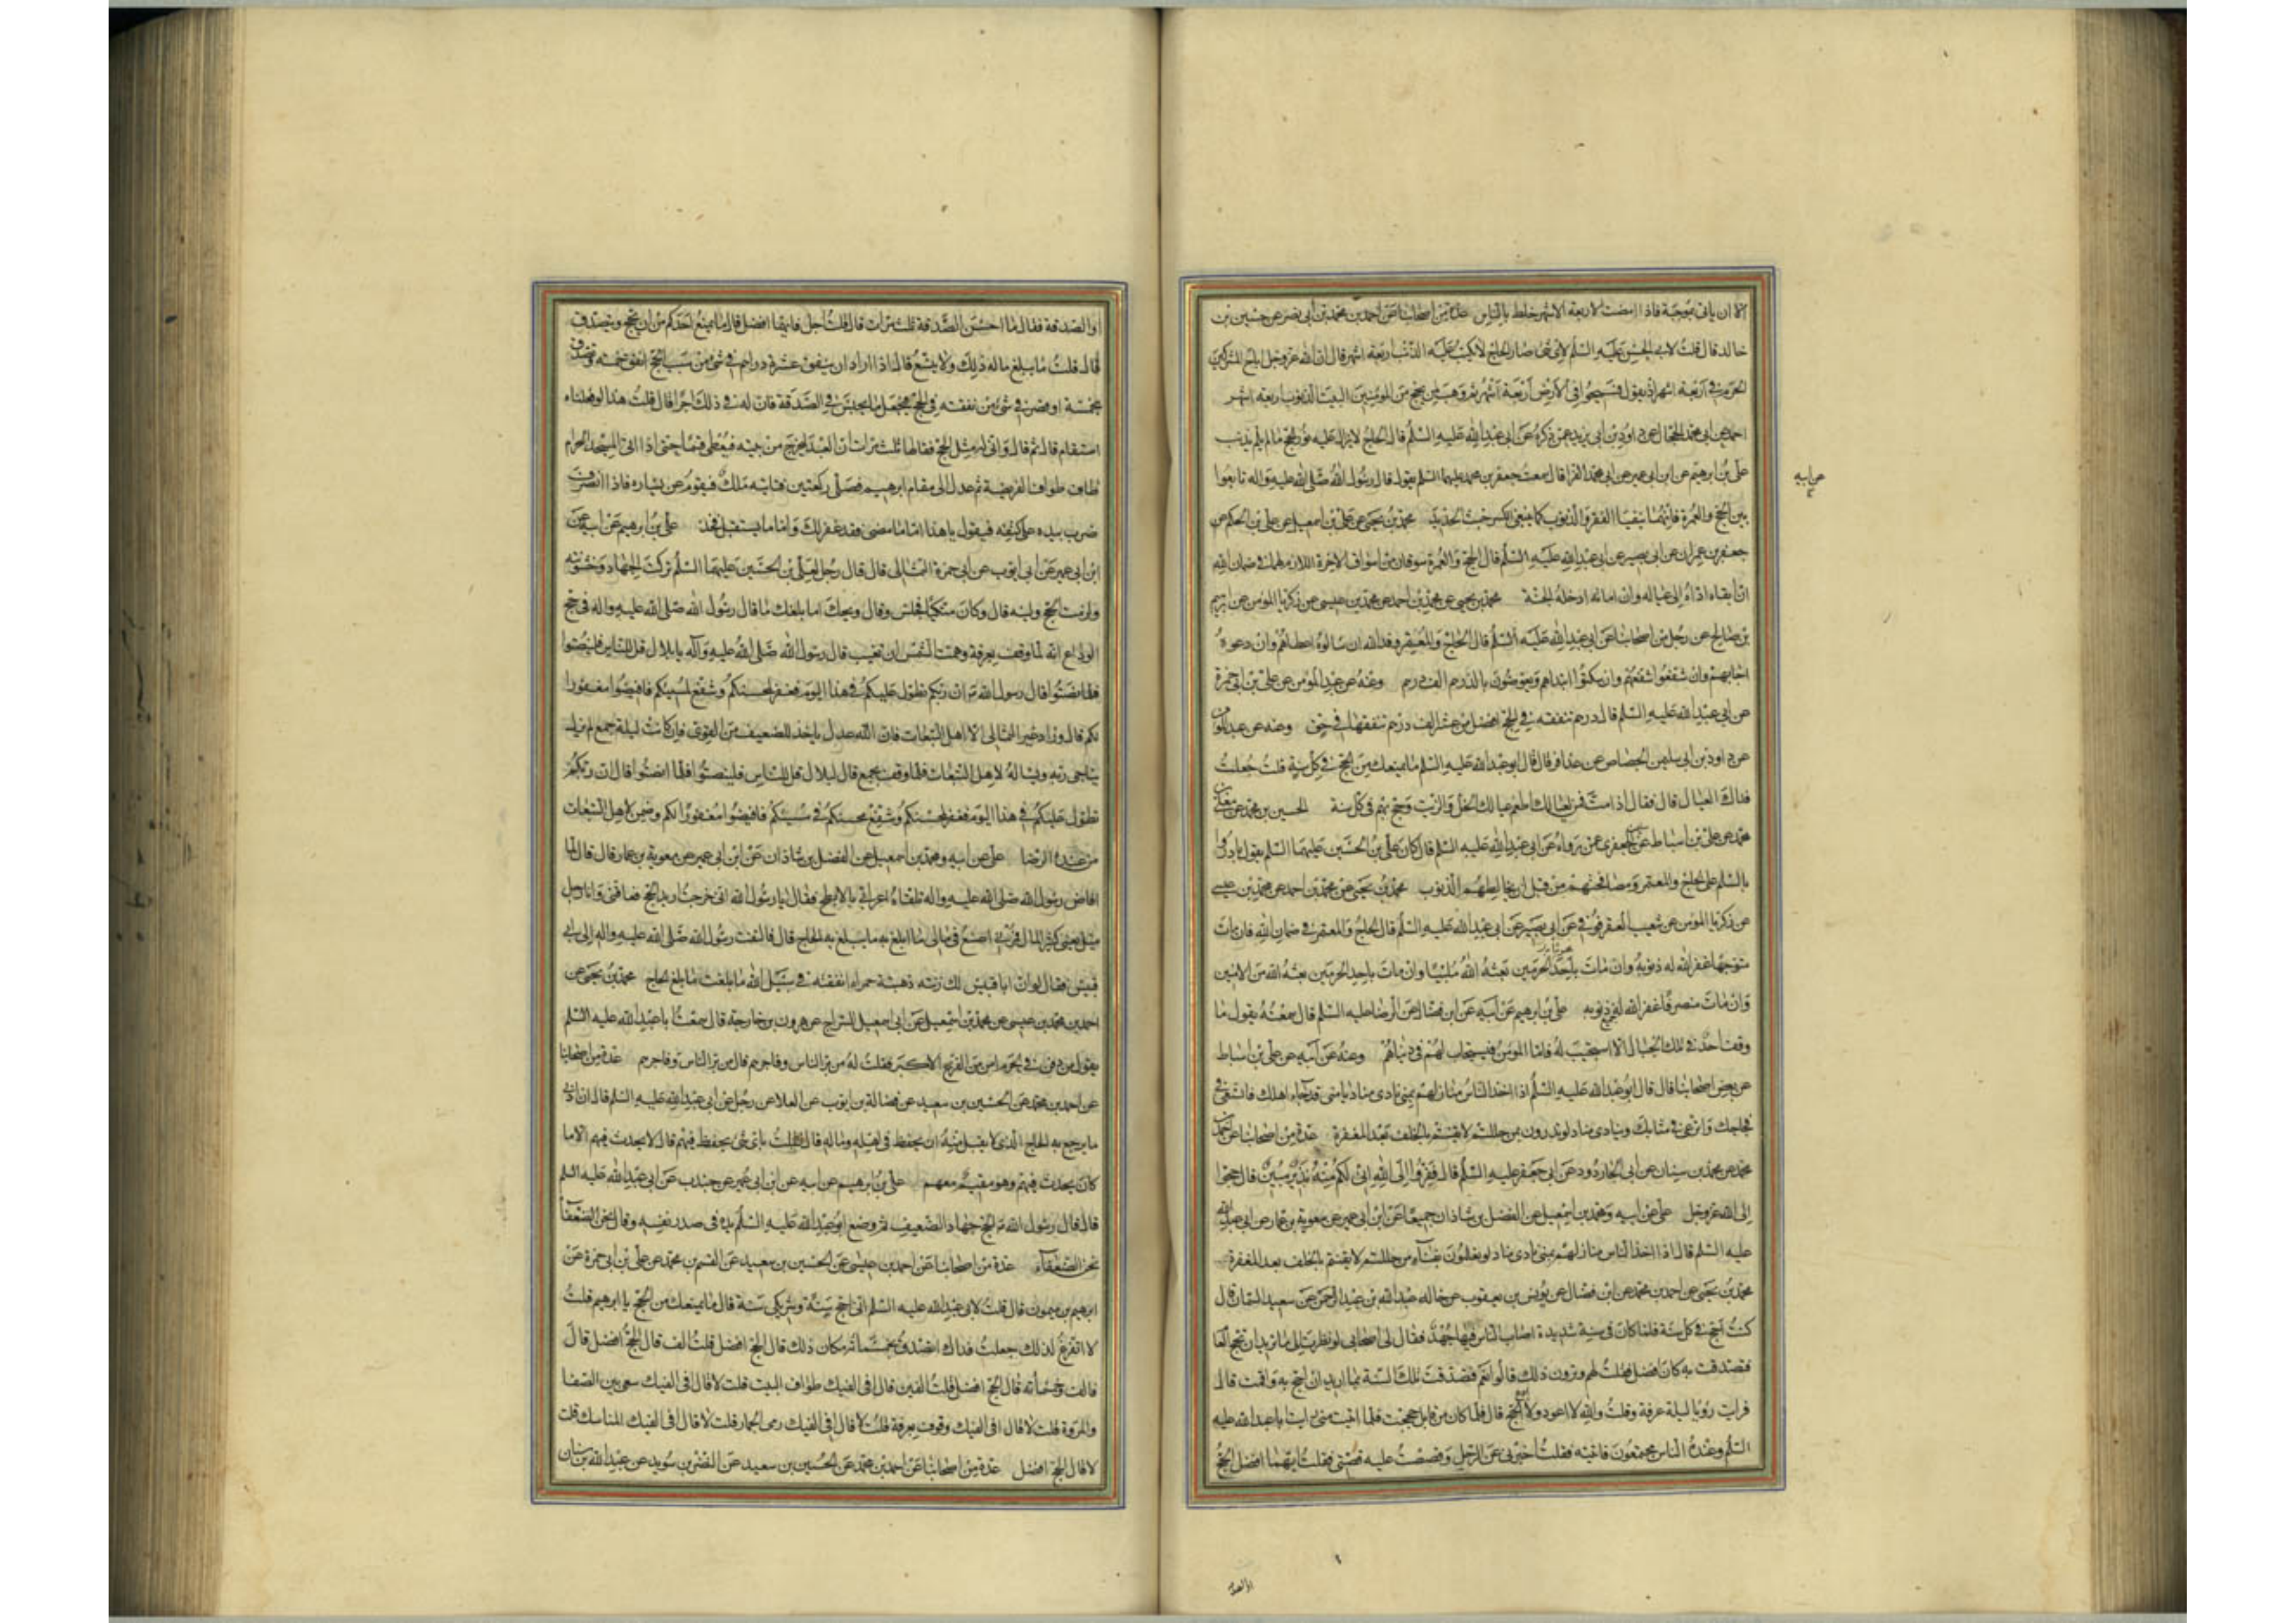 الا ان ياتى بموجبة فاذا مضت الاربعة الاشهر خلط بالناس عدة من اصحابنا عن احمد بن محمد بن ابى نصر عن حسين بن
خالد قال قلت لابى الحسن عليه السلم لاى شئ صار الحاج لا يكتب عليه الذنب اربعة اشهر قال ان الله عز وجل اباح المشركين
الحرم فى اربعة اشهر اذ يقول فسيحوا فى الارض اربعة اشهر ثم وهب لمن يحج من المؤمنين البيت الذنوب اربعة اشهر
احمد عن ابى محمد الحجال عن داود بن ابى يزيد عمن ذكره عن ابى عبد الله عليه السلم قال الحاج لا يزال عليه نور الحج ما لم يلم بذنب
على بن ابرهيم عن ابن ابى عمير عن ابى محمد الفرا قال سمعت جعفر بن محمد عليهما السلم يقول قال رسول الله صلى الله عليه واله تابعوا
عن ابيه
بين الحج والعمرة فانهما ينفيان الفقر والذنوب كما ينفى الكير خبث الحديد محمد بن يحيى عن على بن اسمعيل عن على بن الحكم عن
جعفر بن عمران عن ابى بصير عن ابى عبد الله عليه السلم قال الحج والعمرة سوقان من اسواق الاخرة اللازم لهما فى ضمان الله
ان ابقاه اداه الى عياله وان اماته ادخله الجنة محمد بن يحيى عن محمد بن احمد عن محمد بن عيسى عن زكريا المؤمن عن ابرهيم
بن صالح عن رجل من اصحابنا عن ابى عبد الله عليه السلم قال الحاج والمعتمر وفد الله ان سالوه اعطاهم وان دعوه
اجابهم وان شفعوا شفعهم وان سكتوا ابتداهم ويعوضون بالدرهم الف درهم وعنه عن عبد المؤمن عن على بن ابى حمزة
عن ابى عبد الله عليه السلم قال درهم تنفقه فى الحج افضل من عشرين الف درهم تنفقها فى حق وعنه عن عبد المؤمن
عن داود بن ابى سليمن الجصاص عن عذافر قال قال ابو عبد الله عليه السلم ما يمنعك من الحج فى كل سنة قلت جعلت
فداك العيال قال فقال اذا مت فمن لعيالك اطعم عيالك الخل والزيت وحج بهم فى كل سنة الحسين بن محمد عن معلى بن
محمد عن على بن اسباط عن الجعفرى عمن رواه عن ابى عبد الله عليه السلم قال كان على بن الحسين عليهما السلم يقول بادروا
بالسلم على الحاج والمعتمر ومصافحتهم من قبل ان يخالطهم الذنوب محمد بن يحيى عن محمد بن احمد عن محمد بن عيسى
عن زكريا المؤمن عن شعيب العقرقوفى عن ابى بصير عن ابى عبد الله عليه السلم قال الحاج والمعتمر فى ضمان الله فان مات
متوجها غفر الله له ذنوبه وان مات باحد الحرمين بعثه الله ملبيا وان مات باحد الحرمين بعثه الله من الامنين
وان مات منصرفا غفر الله له ذنوبه على بن ابرهيم عن ابيه عن ابن فضال عن الرضا عليه السلم قال سمعته يقول ما
وقف احد فى تلك الجبال الا استجيب له فاما المؤمن فيستجاب لهم فى دنياهم وعنه عن ابيه عن على بن اسباط
عن بعض اصحابنا قال قال ابو عبد الله عليه السلم اذا اخذ الناس منازلهم بمنى نادى مناد يا منى قد جاء اهلك فاتسعى فى
فجاجك واترعى فى مثابك وينادى مناد لو تدرون بمن حللتم لايقنتم بالخلف بعد المغفرة عدة من اصحابنا عن احمد
محمد عن محمد بن سنان عن ابى الجارود عن ابى جعفر عليه السلم قال ففروا الى الله انى لكم منه نذير مبين قال حجوا
الى الله عز وجل على عن ابيه ومحمد بن اسمعيل عن الفضل بن شاذان جميعا عن ابن ابى عمير عن معوية بن عمار عن ابى عبد الله
عليه السلم قال اذا اخذ الناس منازلهم بمنى نادى مناد لو تعلمون بفناء من حللتم لايقنتم بالخلف بعد المغفرة
محمد بن يحيى عن احمد بن محمد عن ابن فضال عن يونس بن يعقوب عن خاله عبد الله بن عبد الرحمن عن سعيد السمان قال
كنت احج فى كل سنة فلما كان فى سنة شديدة اصاب الناس فيها جهد فقال لى اصحابى لو نظرت الى ما تريد ان تحج العام
فتصدقت به كان افضل فقلت لهم وترون ذلك قالوا نعم فتصدقت تلك السنة بما اريد ان احج به واقمت قال
فرايت رؤيا ليلة عرفة وقلت والله لا اعود ولا ادع الحج قال فلما كان من قابل حججت فلما اتيت منى رايت ابا عبد الله عليه
السلم وعنده الناس مجتمعون فاتيته فقلت اخبرنى عن الرجل وقصصت عليه قصتى فقلت ايهما افضل الحج
او الصدقة فقال ما احسن الصدقة ثلث مرات قال قلت اجل فايهما افضل قال ما يمنع احدكم من ان يحج ويتصدق
قال قلت ما يبلغ ماله ذلك ولا يتسع قال اذا اراد ان ينفق عشرة دراهم فى شئ من سبب الحج انفق خمسة وتصدق
بخمسة او قصر فى شئ من نفقته فى الحج فيجعل ما يحبس فى الصدقة فان له فى ذلك اجرا قال قلت هذا لو فعلناه
استقام قال ثم قال وانى له مثل الحج فقالها ثلث مرات ان العبد ليخرج من بيته فيعطى قسما حتى اذا اتى المسجد الحرام
طاف طواف الفريضة ثم عدل الى مقام ابرهيم فصلى ركعتين فياتيه ملك فيقوم عن يساره فاذا انصرف
ضرب بيده على كتفه فيقول يا هذا اما ما مضى فقد غفر لك واما ما يستقبل فجد على بن ابرهيم عن ابيه عن
ابن ابى عمير عن ابى ايوب عن ابى حمزة الثمالى قال قال رجل لعلى بن الحسين عليهما السلم تركت الجهاد وخشونته
ولزمت الحج ولينه قال وكان متكيا فجلس وقال ويحك اما بلغك ما قال رسول الله صلى الله عليه واله فى حج
الوداع انه لما وقف بعرفة وهمت الشمس ان تغيب قال رسول الله صلى الله عليه وآله يا بلال قل للناس فلينصتوا
فلما نصتوا قال رسول الله ص ان ربكم تطول عليكم فى هذا اليوم فغفر لمحسنكم وشفع لمسيئكم فافيضوا مغفورا
لكم قال وزاد غير الثمالى الا اهل التبعات فان الله عدل ياخذ للضعيف من القوى فلما كانت ليلة جمع لم يزل
يناجى ربه ويساله لاهل التبعات فلما وقف بجمع قال لبلال قل للناس فلينصتوا فلما انصتوا قال ان ربكم
تطول عليكم فى هذا اليوم فغفر لمحسنكم وشفع محسنكم فى مسيئكم فافيضوا مغفورا لكم وضمن لاهل التبعات
من عنده الرضا على عن ابيه ومحمد بن اسمعيل عن الفضل بن شاذان عن ابن ابى عمير عن معوية بن عمار قال قال لما
افاض رسول الله صلى الله عليه واله تلقاه اعرابى بالابطح فقال يا رسول الله انى خرجت اريد الحج فعاقنى وانا رجل
ميل يعنى كثير المال فمرنى اصنع فى مالى ما ابلغ به ما يبلغ به الحاج قال فالتفت رسول الله صلى الله عليه واله الى ابى
قبيس فقال لو ان ابا قبيس لك زنته ذهبة حمراء انفقته فى سبيل الله ما بلغت ما بلغ الحاج محمد بن يحيى عن
احمد بن محمد بن عيسى عن محمد بن اسمعيل عن ابى اسمعيل السراج عن هرون بن خارجة قال سمعت ابا عبد الله عليه السلم
يقول من دفن فى الحرم امن من الفزع الاكبر فقلت له من بر الناس وفاجرهم قال من بر الناس وفاجرهم عدة من اصحابنا
عن احمد بن محمد عن الحسين بن سعيد عن فضالة بن ايوب عن العلا عن رجل عن ابى عبد الله عليه السلم قال ان ادنى
ما يرجع به الحاج الذى لا يقبل منه ان يحفظ فى اهله وماله قال فقلت باى شئ يحفظ فيهم قال لا يحدث فيهم الا ما
كان يحدث فيهم وهو مقيم معهم على بن ابرهيم عن ابيه عن ابن ابى عمير عن جندب عن ابى عبد الله عليه السلم
قال قال رسول الله ص الحج جهاد الضعيف ثم وضع ابو عبد الله عليه السلم يده فى صدر نفسه وقال نحن الضعفآء
نحن الضعفآء عدة من اصحابنا عن احمد بن عيسى عن الحسين بن سعيد عن القسم بن محمد عن على بن ابى حمزة عن
ابرهيم بن ميمون قال قلت لابى عبد الله عليه السلم انى احج سنة وشريكى سنة قال ما يمنعك من الحج يا ابرهيم قلت
لا اتفرغ لذلك جعلت فداك اتصدق بخمسمائة مكان ذلك قال الحج افضل قلت الف قال الحج افضل قال
فالف وخمسمائه قال الحج افضل قلت الفين قال افى الفيك طواف البيت قلت لا قال افى الفيك سعى بين الصفا
والمروة قلت لا قال افى الفيك وقوف بعرفة قلت لا قال افى الفيك رمى الجمار قلت لا قال افى الفيك المناسك قلت
لا قال الحج افضل عدة من اصحابنا عن احمد بن محمد عن الحسين بن سعيد عن النضر بن سويد عن عبد الله بن سنان